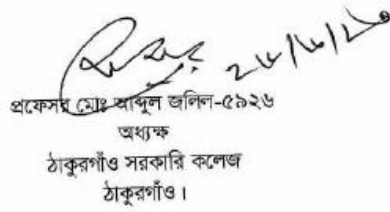 ২৮/৬/২০
প্রফেসর মোঃ আব্দুল জলিল-৫৯২৬
অধ্যক্ষ
ঠাকুরগাঁও সরকারি কলেজ
ঠাকুরগাঁও।